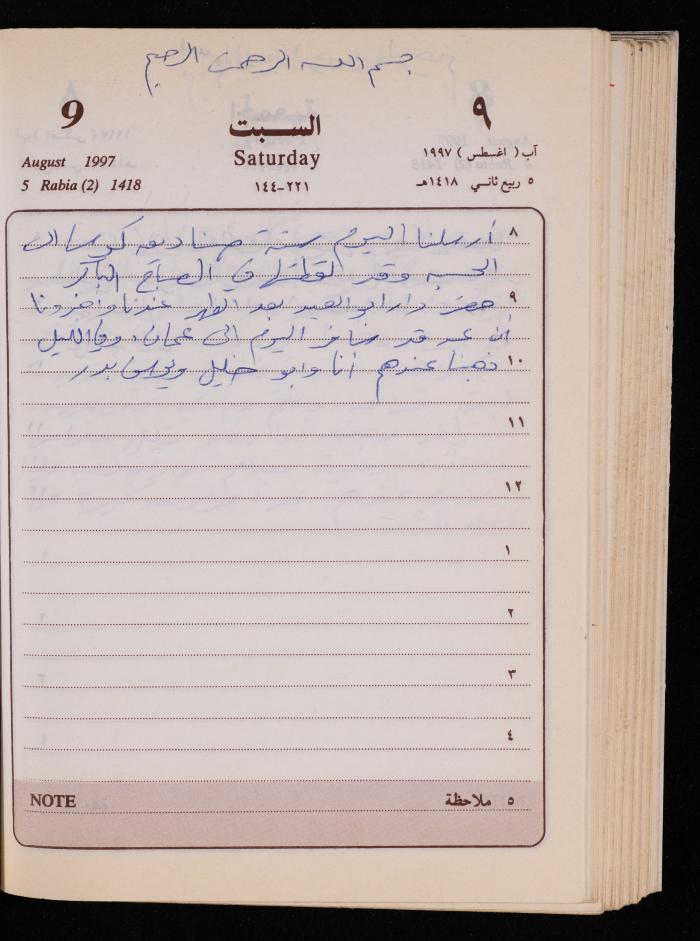 بسم الله الرحمن الرحيم
9 السبت ٩
August 1997 Saturday آب ( اغسطس ) ١٩٩٧
5 Rabia (2) 1418 ٢٢١-١٤٤ ٥ ربيع ثاني ١٤١٨هـ
٨ أرسلنا اليوم ستة صناديق كوسا الى
الحسبه وقد لقطتها في الصباح الباكر
٩ حضر دار ابو العبد بعد الظهر عندنا وأخبرونا
أن قد سافر اليوم الى عمان، وفي الليل
١٠ ذهبنا عندهم أنا وابو خليل بدر
١١
١٢
١
٢
٣
٤
NOTE ملاحظة ٥